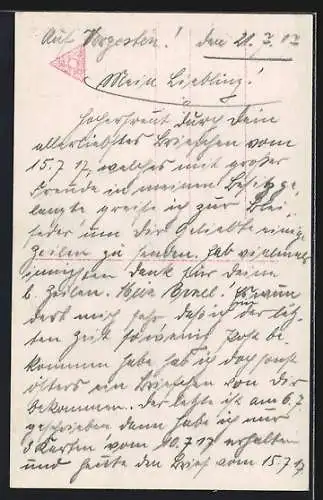 Auf Vorposten! den 21.7.17
Mein Liebling!
Hocherfreut durch Dein
allerliebstes Briefchen vom
15.7.17, welches mit großer
Freude in meinen Besitz ge-
langte greife ich zur Blei-
feder um der Geliebte einige
Zeilen zu senden. Hab vielmals
innigsten Dank für deine
l. Zeilen. Mein! Es wun
dert mich sehr daß ich der letz-
ten Zeit so wenig Post be-
kommen habe hab ich doch sonst
öfters ein Briefchen von dir
bekommen. Der letzte ist am 6.7
geschrieben dann habe ich nur
3 Karten vom 10.7.17 erhalten
und heute den Brief vom 15.7.17